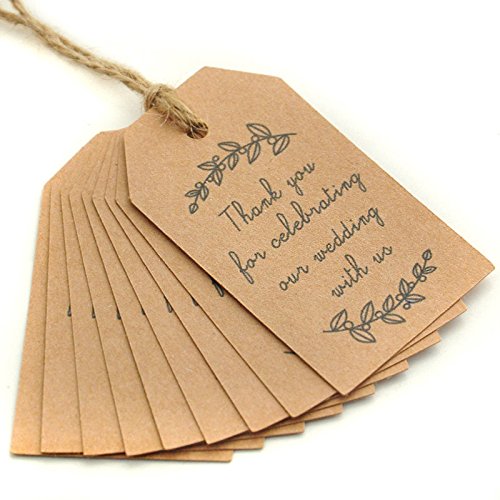 Thank you
for celebrating
our wedding
with us